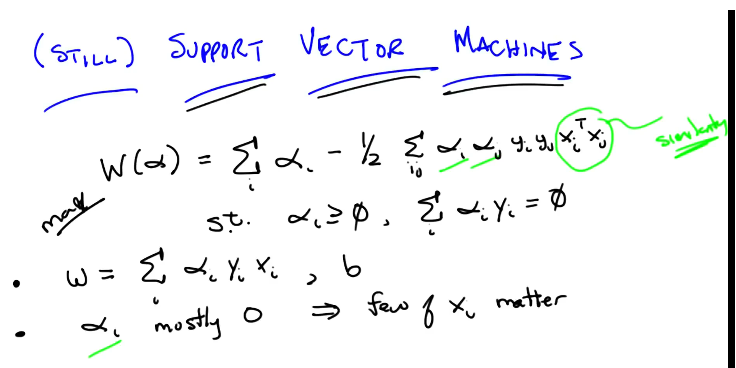 (STILL) SUPPORT VECTOR MACHINES
max W(α) = Σ_i α_i - 1/2 Σ_ij α_i α_j y_i y_j x_i^T x_j similarity
s.t. α_i ≥ 0, Σ_i α_i y_i = 0
• w = Σ_i α_i y_i x_i , b
• α_i mostly 0 ⇒ few of x_i matter